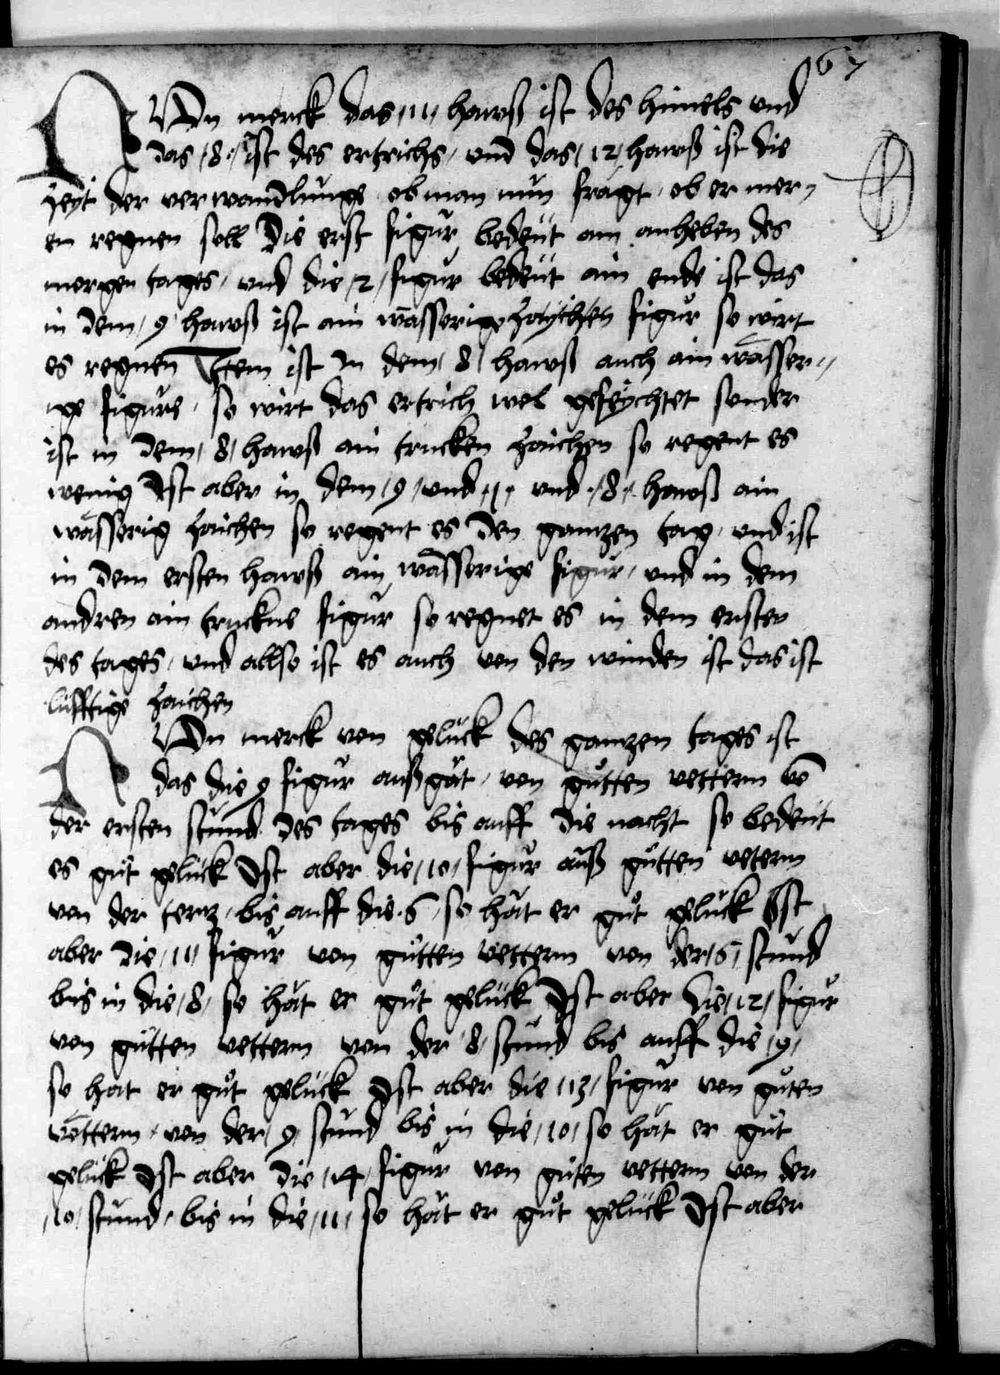 67
NUn merck das /11/ hawß ist des himels und
das /8/ ist des ertrichs / und das /12/ hawß ist die
zeyt der verwandlunge ob man nun fragt / ob er mor„
en regnen soll Die erst figur bedeüt am anheben des
morgen tages / und die /2/ figur bedeüt ain ende ist das
in dem /9/ hawß ist ain wasserige zaychen figur so wirt
es regnen Item ist In dem /8/ hawß auch ain wasser„
ige figure / so wirt das ertrich wol gefeychtet sonder
ist in dem /8/ hawß ain trucken zaichen so regent es
wenig Ist aber in dem /9/ und /1/ und /8/ hawß ain
wasserig zaichen so regent es den gantzen tag / und ist
in dem ersten hawß ain wasserige figur / und in dem
andren ain truckne figur so regnet es in dem ersten
des tages / und allso ist es auch von den winden ist das ist
lüfftige zaichen
NUn merck von gelück des gantzen tages ist
das die 9 figur außgat / von gůtten vettern vō
der ersten stund des tages bis auff die nacht so bedeüt
es gůt gelück Ist aber die /10/ figur auß gůtten vetern
von der tertz / bis auff die 6 / so hat er gůt gelück Ist
aber die /11/ figur von gůtten vettern von der /6/ stund
bis in die /8/ so hat er gůt gelück Ist aber die /12/ figur
von gůtten vettern von der /8/ stund bis auff die /9/
so hat er gůt gelück Ist aber die /13/ figur von gůten
vettern / von der /9/ stund bis in die /10/ so hat er gůt
gelück Ist aber die /14/ figur von gůten vettern von der
/10/ stund / bis in die /11/ so hat er gůt gelück Ist aber